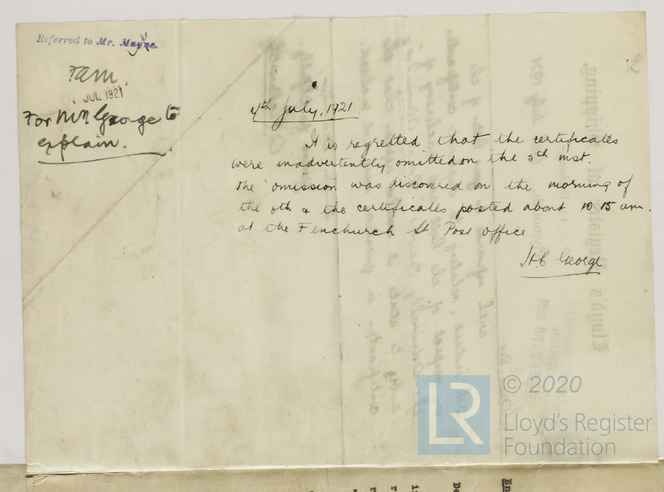 Referred to Mr. Mayne.
JUL 1921
For Mr George to
explain.
7th July, 1921
It is regretted that the certificates
were inadvertently omitted on the 5th inst.
The omission was discovered on the morning of
the 6th & the certificates posted about 10 15 am.
at the Fenchurch St Post Office
H.C George
LR
© 2020
Lloyd's Register
Foundation